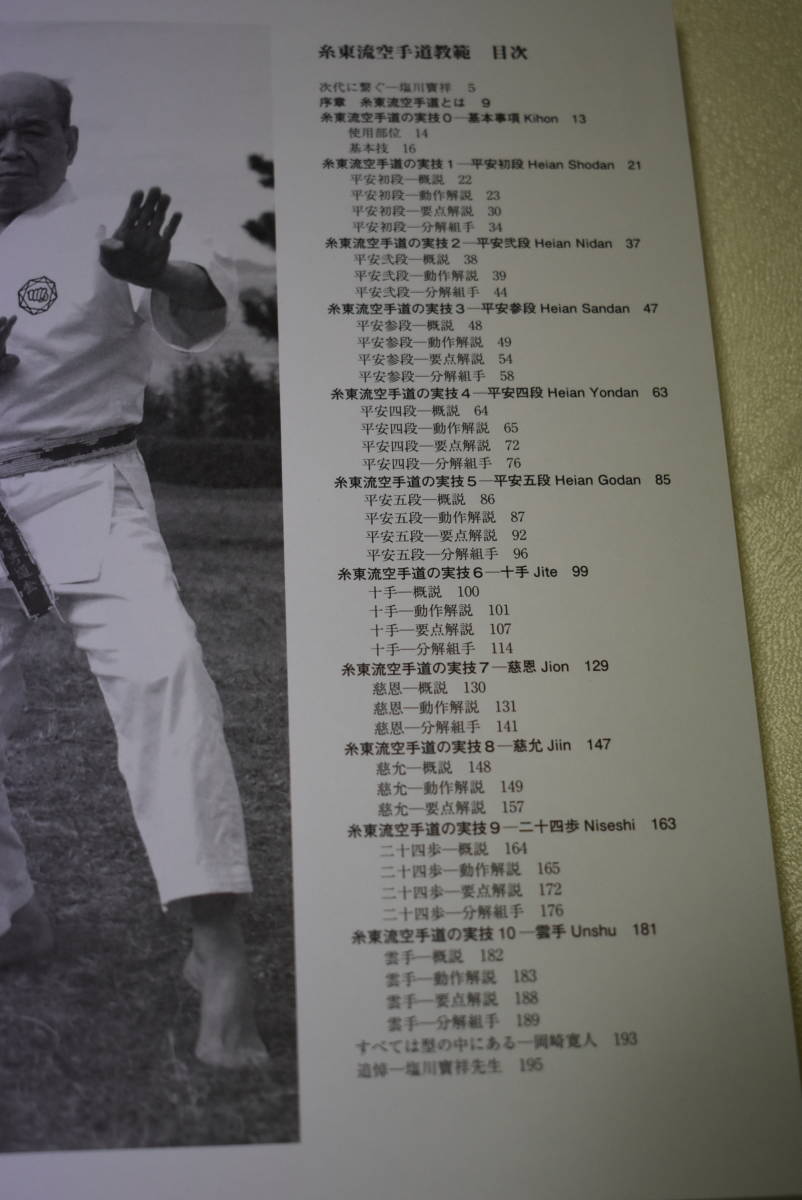 糸東流空手道教範　目次
次代に繋ぐ―塩川寶祥　5
序章　糸東流空手道とは　9
糸東流空手道の実技0―基本事項 Kihon　13
使用部位　14
基本技　16
糸東流空手道の実技1―平安初段 Heian Shodan　21
平安初段―概説　22
平安初段―動作解説　23
平安初段―要点解説　30
平安初段―分解組手　34
糸東流空手道の実技2―平安弐段 Heian Nidan　37
平安弐段―概説　38
平安弐段―動作解説　39
平安弐段―分解組手　44
糸東流空手道の実技3―平安参段 Heian Sandan　47
平安参段―概説　48
平安参段―動作解説　49
平安参段―要点解説　54
平安参段―分解組手　58
糸東流空手道の実技4―平安四段 Heian Yondan　63
平安四段―概説　64
平安四段―動作解説　65
平安四段―要点解説　72
平安四段―分解組手　76
糸東流空手道の実技5―平安五段 Heian Godan　85
平安五段―概説　86
平安五段―動作解説　87
平安五段―要点解説　92
平安五段―分解組手　96
糸東流空手道の実技6―十手 Jite　99
十手―概説　100
十手―動作解説　101
十手―要点解説　107
十手―分解組手　114
糸東流空手道の実技7―慈恩 Jion　129
慈恩―概説　130
慈恩―動作解説　131
慈恩―分解組手　141
糸東流空手道の実技8―慈允 Jiin　147
慈允―概説　148
慈允―動作解説　149
慈允―要点解説　157
糸東流空手道の実技9―二十四歩 Niseshi　163
二十四歩―概説　164
二十四歩―動作解説　165
二十四歩―要点解説　172
二十四歩―分解組手　176
糸東流空手道の実技10―雲手 Unshu　181
雲手―概説　182
雲手―動作解説　183
雲手―要点解説　188
雲手―分解組手　189
すべては型の中にある―岡崎寛人　193
追悼―塩川寶祥先生　195